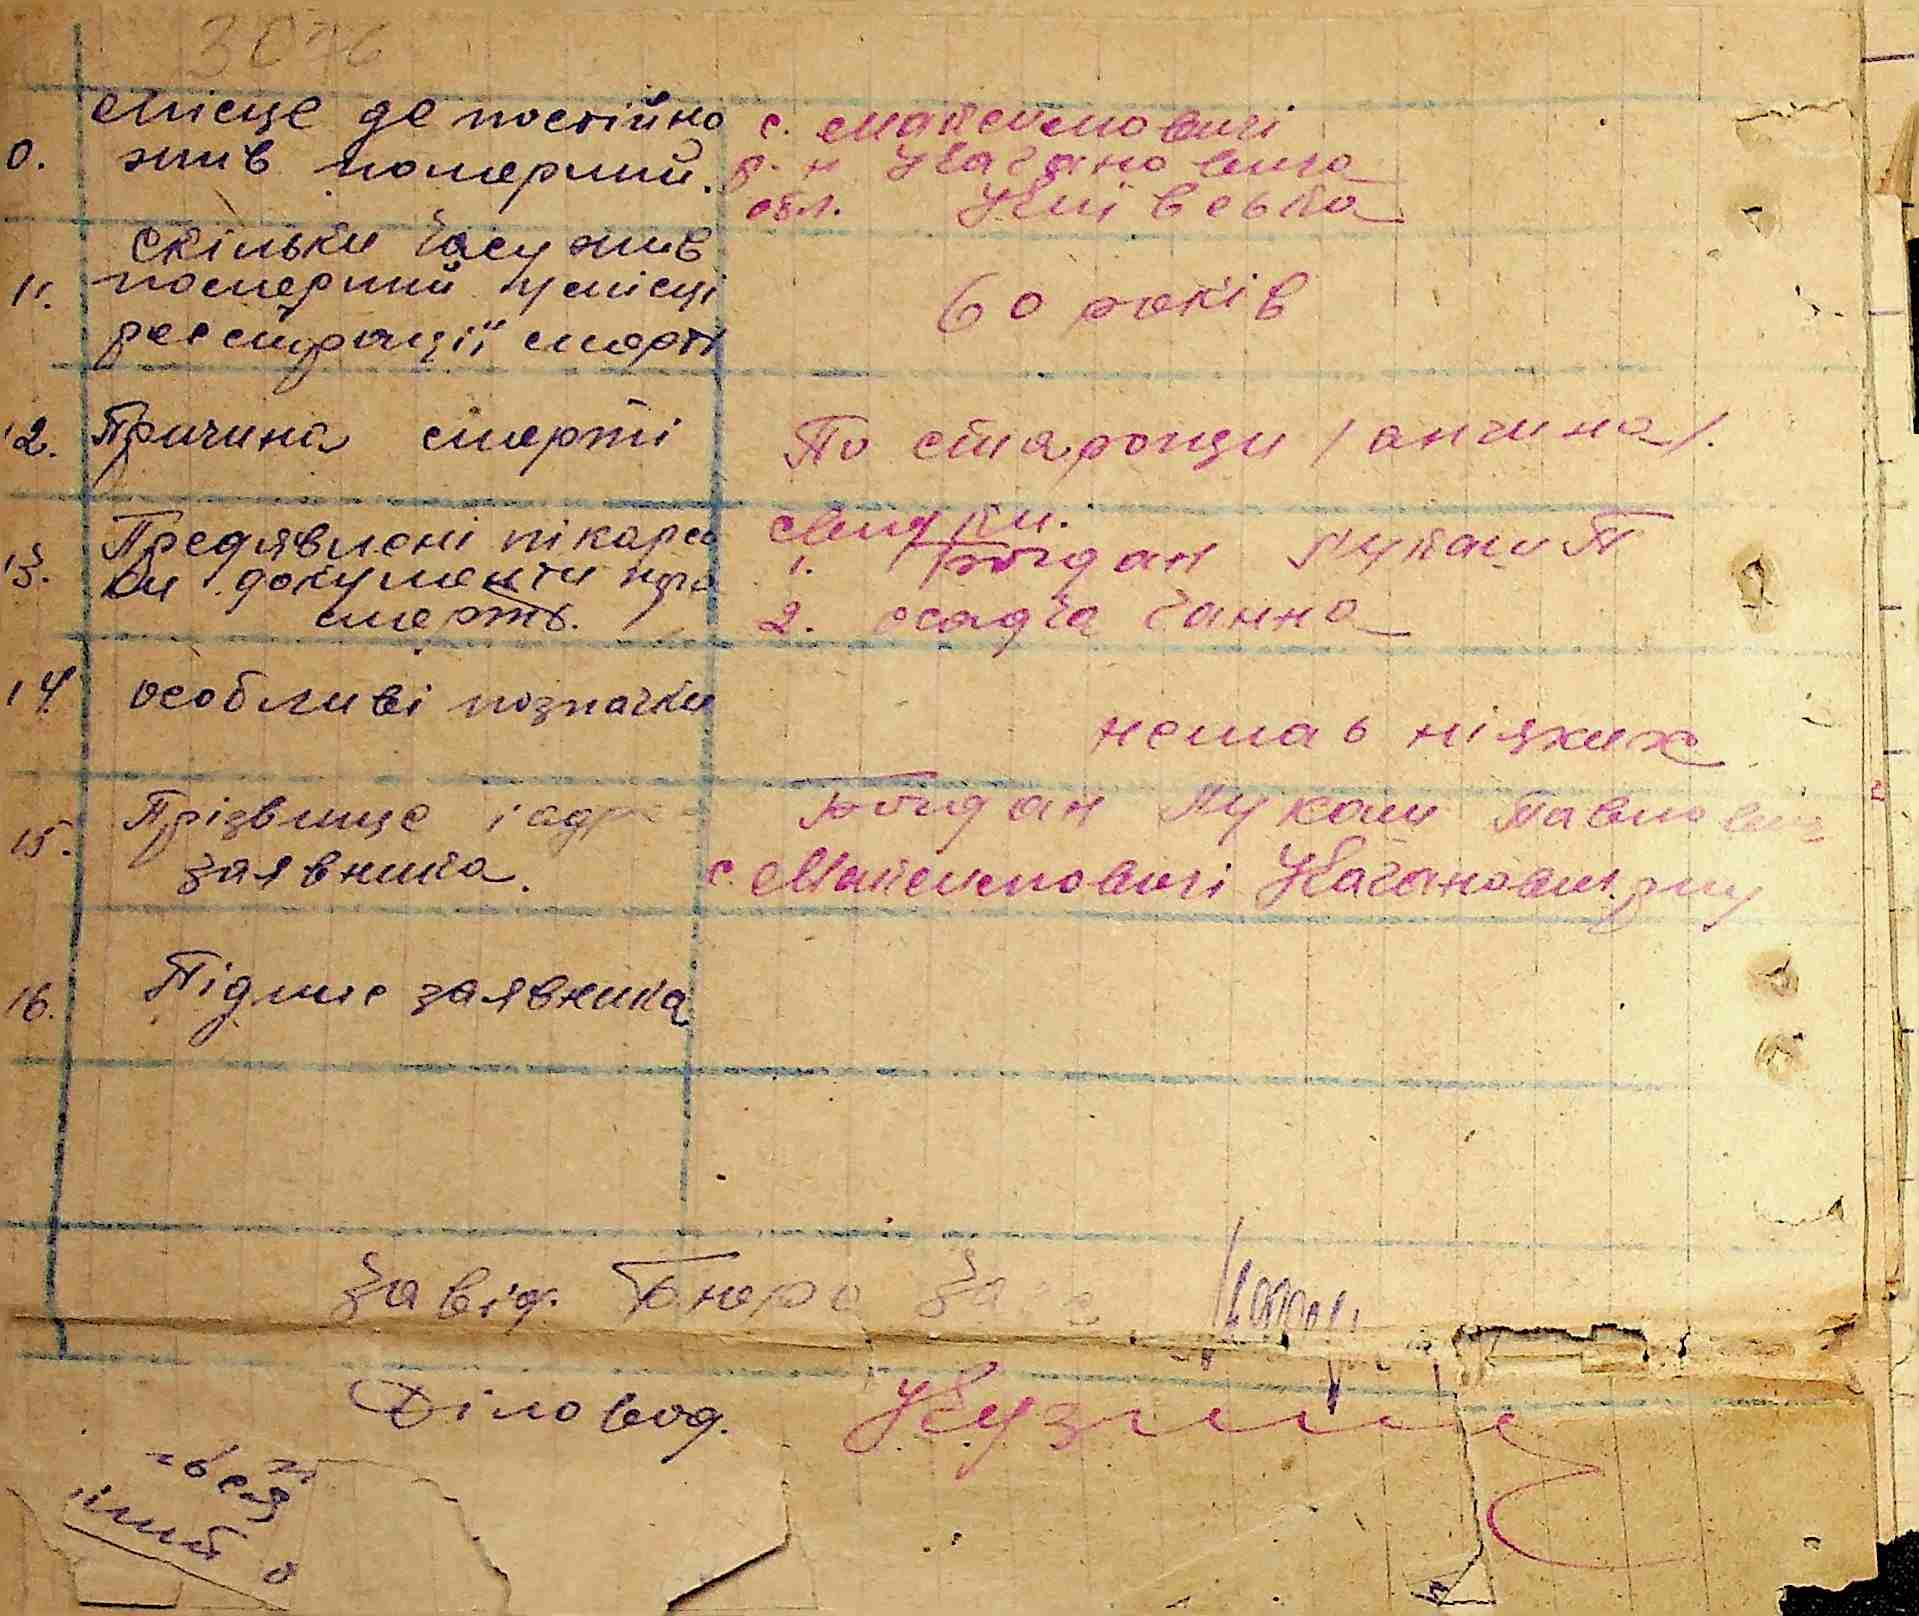 3076
Місце де постійно
0. жив померший.
с. Максимовичі
р-н Кагановича
обл. Київська
скільки часу жив
11. померший у місці
реєстрації смерті
60 років
12. Причина смерті
По старощи /ангина/.
Предявлені лікарсь
13. ки документи про
смерть.
свидки.
1. Богдан Лукаш П
2. осадча Ганна
14 особливі позначки
немає ніяких
Прізвище і адре
15. заявника.
Богдан Лукаш Павлович
с. Максимовичі Каганович. р-ну
16. Підпис заявника
Завід. Бюро Загс
Діловод.